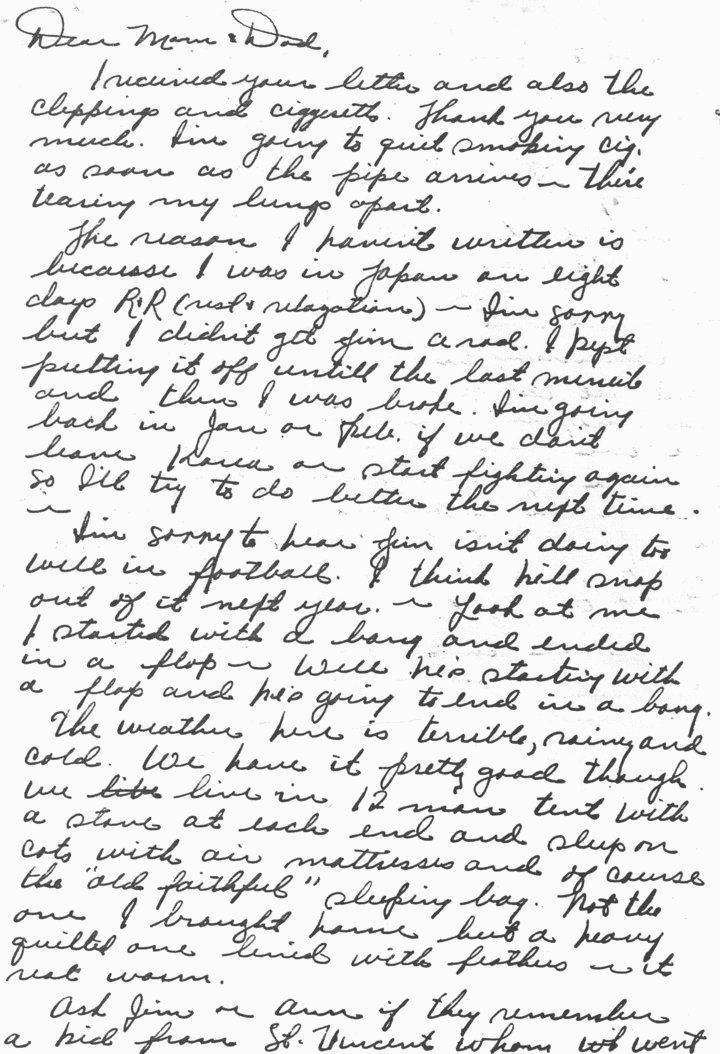 Dear Mom & Dad,
I received your letter and also the
clippings and ciggeretts. Thank you very
much. I'm going to quit smoking cig.
as soon as the pipe arrives ~ there
tearing my lungs apart.
The reason I haven't written is
because I was in Japan on eight
days R+R (rest + relaxation) ~ I'm sorry
but I didn't get Jim a rod. I kept
putting it off untill the last minute
and then I was broke. I'm going
back in Jan or Feb. if we don't
leave Korea or start fighting again
so I'll try to do better the next time.
~
I'm sorry to hear Jim isn't doing too
well in football. I think he'll snap
out of it next year. ~ Look at me
I started with a bang and ended
in a flop ~ Well he's starting with
a flop and he's going to end in a bang.
The weather here is terrible, rainy and
cold. We have it pretty good though.
we like live in 12 man tent with
a stove at each end and sleep on
cots with air mattresses and of course
the "old faithful" sleeping bag. Not the
one I brought home but a heavy
quilted one lined with feathers ~ it
real warm.
Ask Jim or Ann if they remember
a kid from St. Vincent whom we went